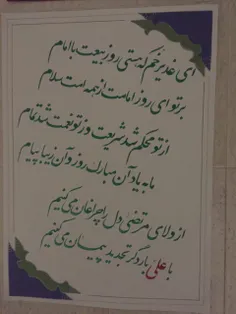 ای غدیر خم که هستی روز بیعت با امام
بر تو ای روز امامت از همه امت سلام
از تو محکم شد شریعت وز تو نعمت شد تمام
ما به یاد آن مبارک روز و آن زیبا پیام
از ولای مرتضی دل را چراغان می‌کنیم
با علی بار دگر تجدید پیمان می‌کنیم